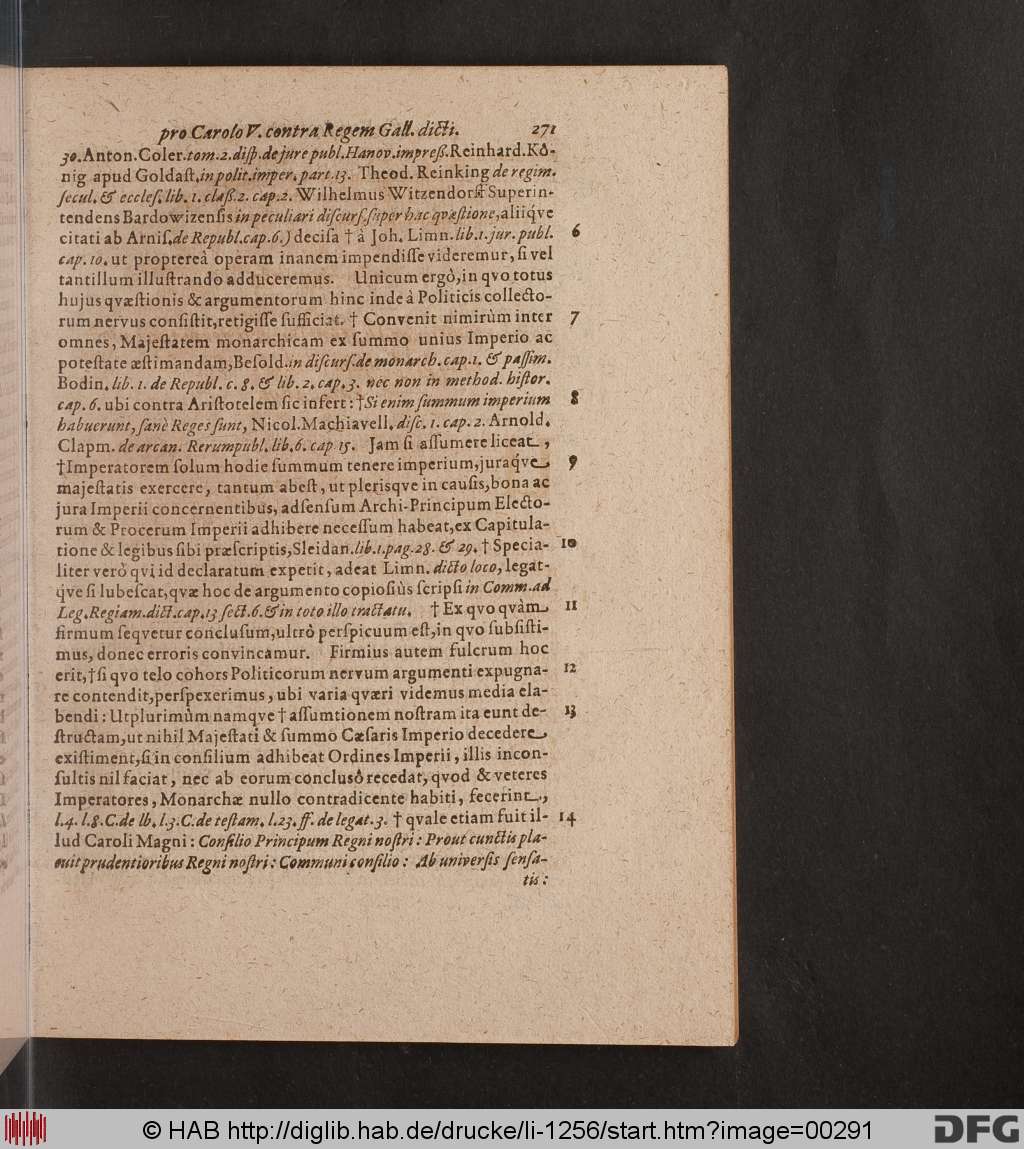 pro Carolo V. contra Regem Gall. dicti. 271
30. Anton. Coler. tom. 2. disp. de jure publ. Hanov. impreß. Reinhard. Kö-
nig apud Goldast. in polit. imper. part. 13. Theod. Reinking de regim.
secul. & eccles. lib. 1. claß. 2. cap. 2. Wilhelmus Witzendorff Superin-
tendens Bardowizensis in peculiari discurs. super hac qvæstione, aliiq́ve
citati ab Arnis. de Republ. cap. 6.) decisa † à Joh. Limn. lib. 1. jur. publ. 6
cap. 10. ut proptereà operam inanem impendisse videremur, si vel
tantillum illustrando adduceremus. Unicum ergò, in qvo totus
hujus qvæstionis & argumentorum hinc inde à Politicis collecto-
rum nervus consistit, retigisse sufficiat. † Convenit nimirùm inter 7
omnes, Majestatem monarchicam ex summo unius Imperio ac
potestate æstimandam, Besold. in discurs. de monarch. cap. 1. & passim.
Bodin. lib. 1. de Republ. c. 8. & lib. 2. cap. 3. nec non in method. histor.
cap. 6. ubi contra Aristotelem sic infert: † Si enim summum imperium 8
habuerunt, sanè Reges sunt, Nicol. Machiavell. disc. 1. cap. 2. Arnold.
Clapm. de arcan. Rerumpubl. lib. 6. cap 15. Jam si assumere liceat,
† Imperatorem solum hodie summum tenere imperium, juraq́ve 9
majestatis exercere, tantum abest, ut plerisqve in causis, bona ac
jura Imperii concernentibus, adsensum Archi-Principum Electo-
rum & Procerum Imperii adhibere necessum habeat, ex Capitula-
tione & legibus sibi præscriptis, Sleidan. lib. 1. pag. 28. & 29. † Specia- 10
liter verò qvi id declaratum expetit, adeat Limn. dicto loco, legat-
q́ve si lubescat, qvæ hoc de argumento copiosiùs scripsi in Comm. ad
Leg. Regiam. dict. cap. 13 sect. 6. & in toto illo tractatu. † Ex qvo qvàm 11
firmum seqvetur conclusum, ultrò perspicuum est, in qvo subsisti-
mus, donec erroris convincamur. Firmius autem fulcrum hoc
erit, † si qvo telo cohors Politicorum nervum argumenti expugna- 12
re contendit, perspexerimus, ubi varia qværi videmus media ela-
bendi: Utplurimùm namqve † assumtionem nostram ita eunt de- 13
structam, ut nihil Majestati & summo Cæsaris Imperio decedere
existiment, si in consilium adhibeat Ordines Imperii, illis incon-
sultis nil faciat, nec ab eorum conclusô recedat, qvod & veteres
Imperatores, Monarchæ nullo contradicente habiti, fecerint,
l. 4. l. 8. C. de lb. l. 3. C. de testam. l. 23. ff. de legat. 3. † qvale etiam fuit il- 14
lud Caroli Magni: Consilio Principum Regni nostri: Prout cunctis pla-
cuit prudentioribus Regni nostri: Communi consilio: Ab universis sensa-
tis:
© HAB http://diglib.hab.de/drucke/li-1256/start.htm?image=00291
DFG